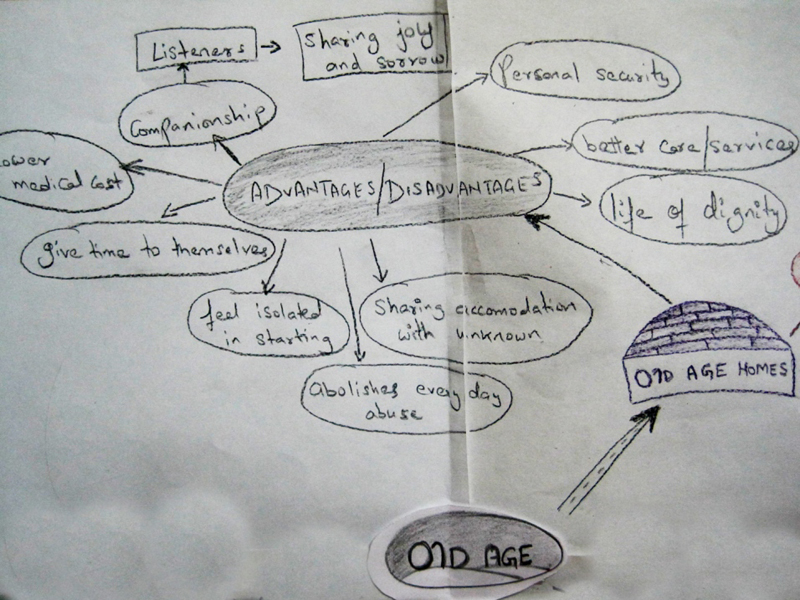 Listeners
Sharing joly
and sorrow
Personal security
Companionship
better care/services
ower
medical cost
ADVANTAGES/DISADVANTAGES
life of dignity
give time to themselves
feel isolated
in starting
Sharing accomodation
with unknown
Abolishes every day
abuse
OLD AGE HOMES
OLD AGE